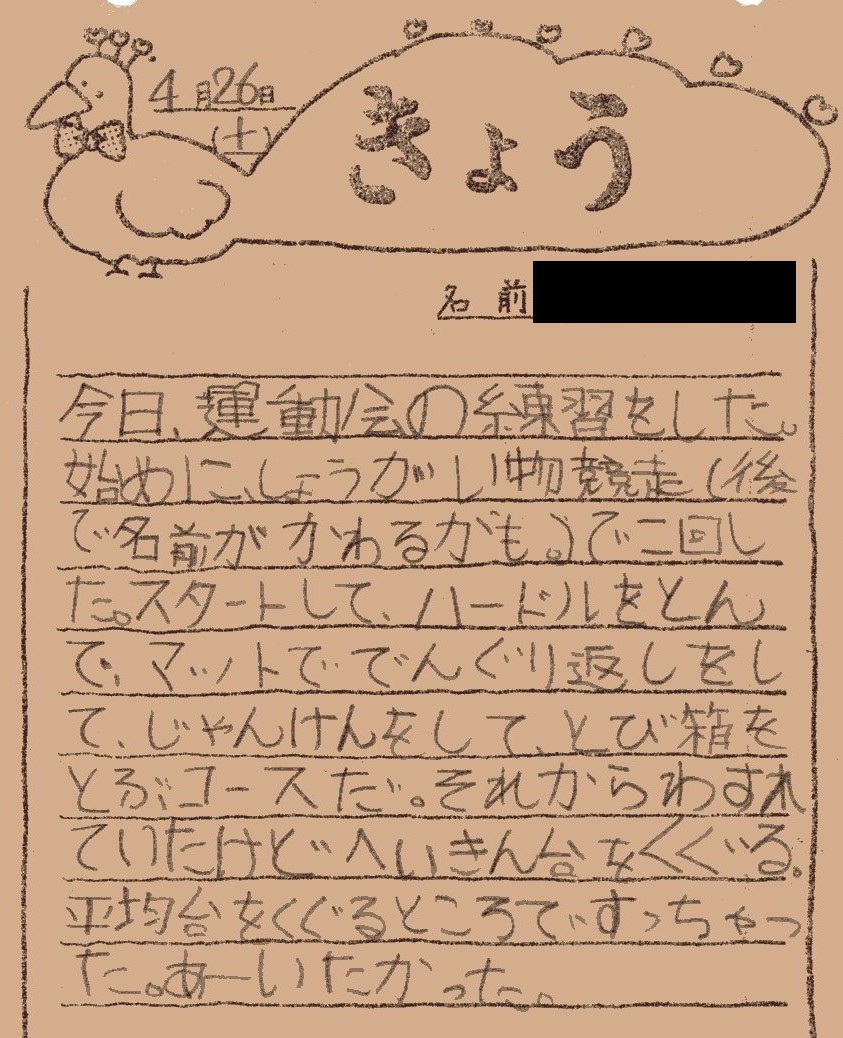 4月26日
(土)
きょう
名前
今日、運動会の練習をした。
始めに、しょうがい物競走(後
で名前がかわるかも。)で二回し
た。スタートして、ハードルをとん
で、マットででんぐり返しをし
て、じゃんけんをして、とび箱を
とぶコースだ。それからわすれ
ていたけどへいきん台をくぐる。
平均台をくぐるところですっちゃっ
た。あーいたかった。